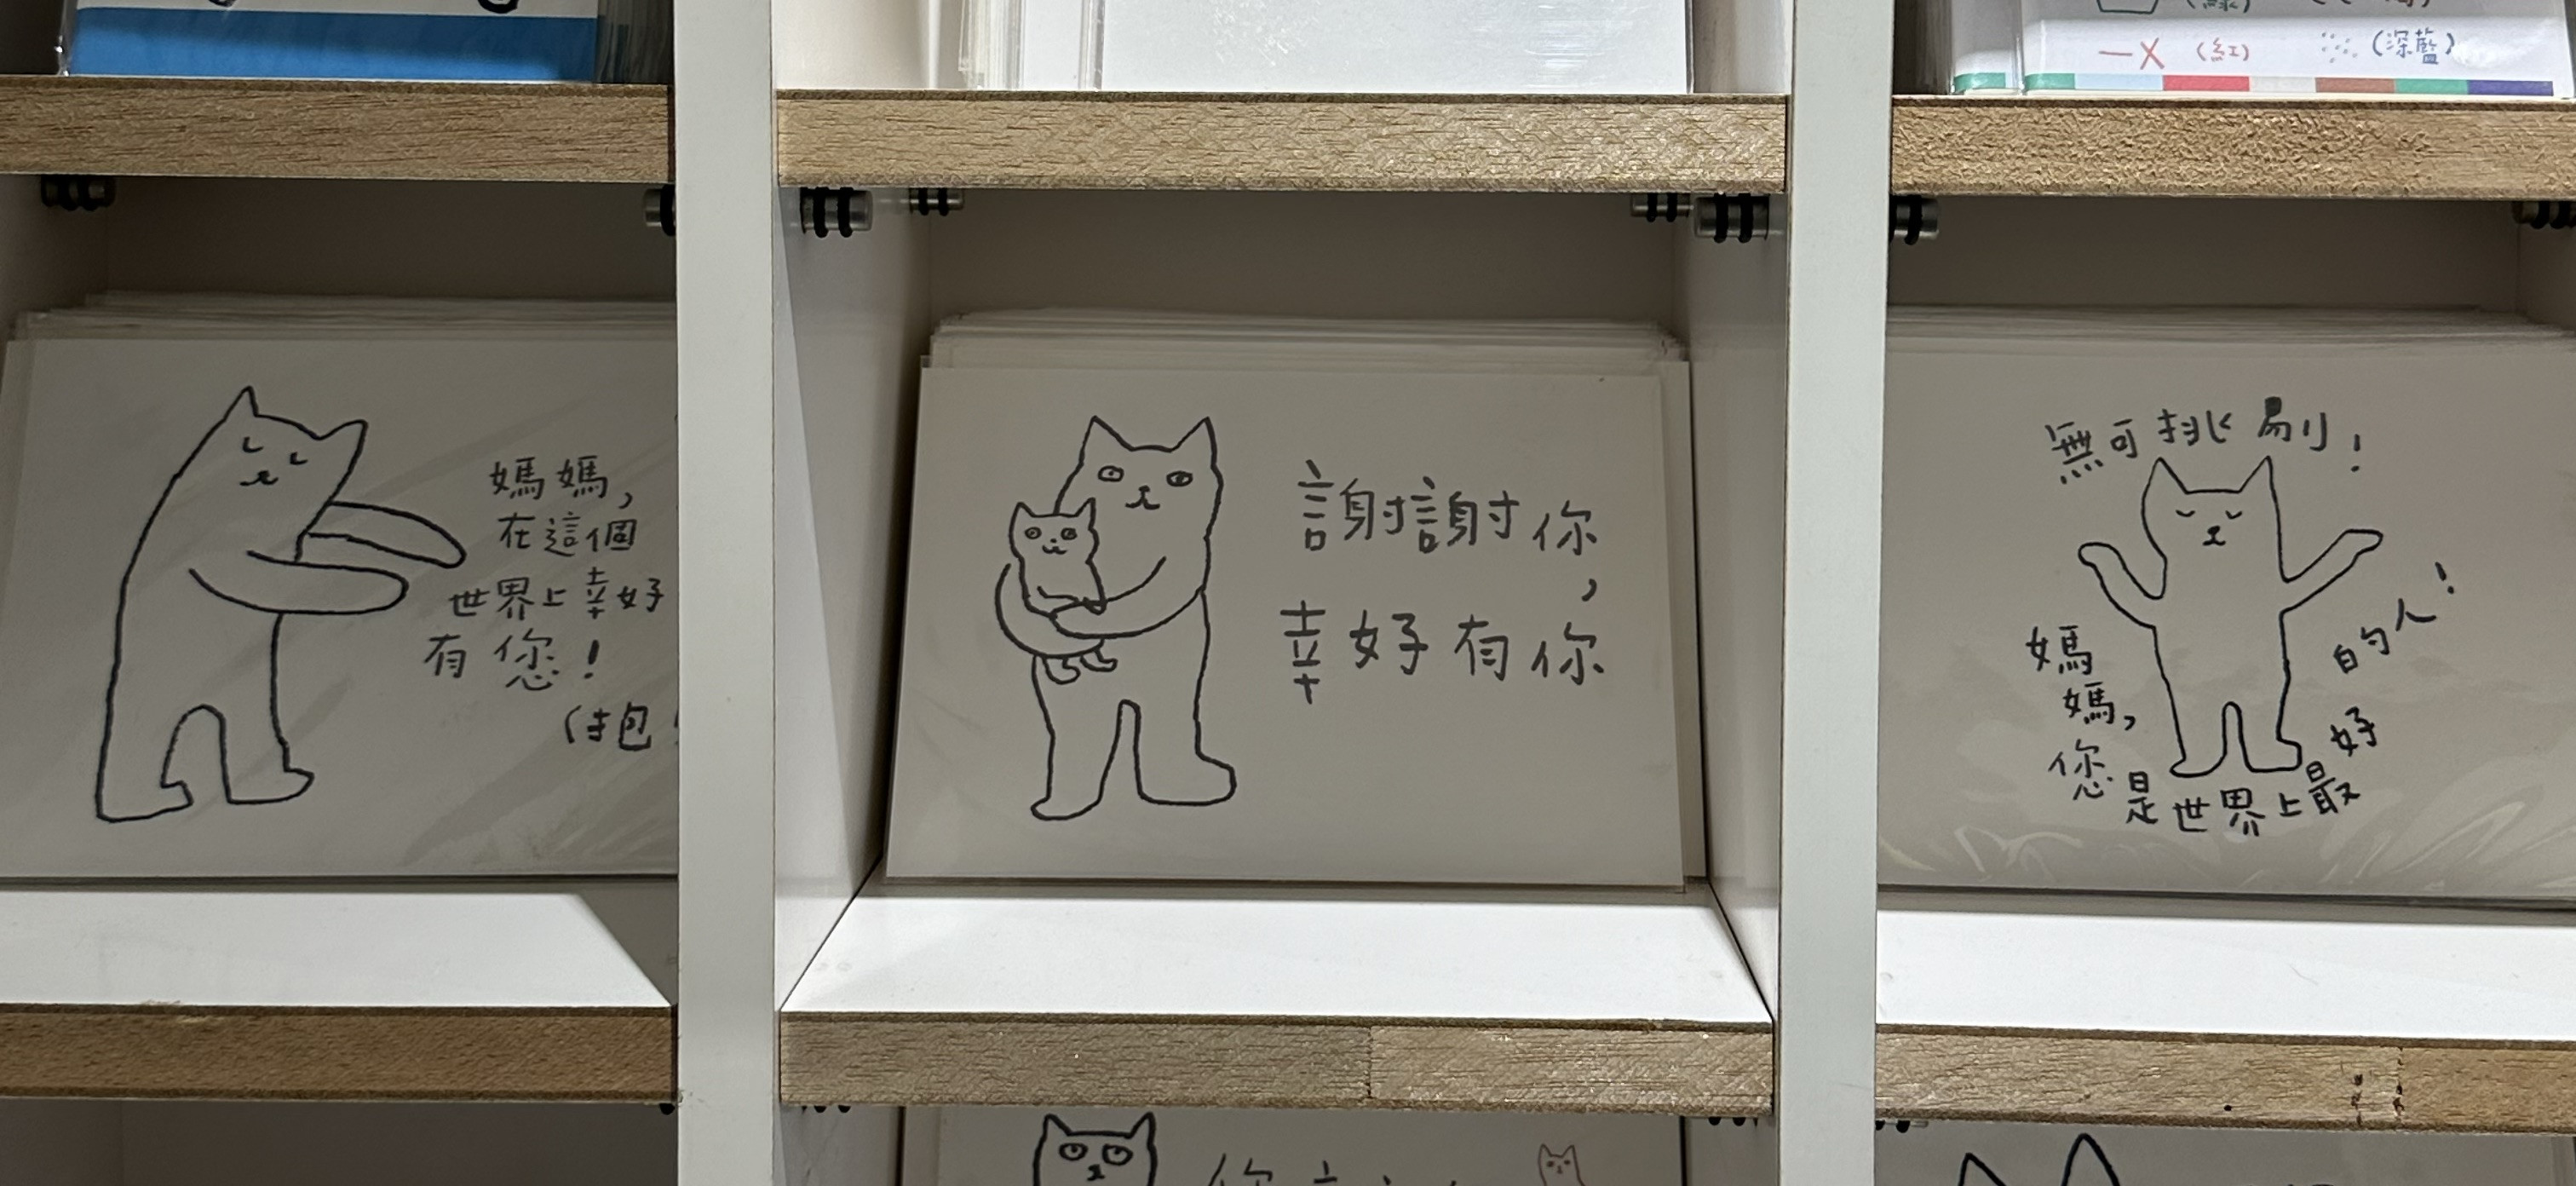 (綠)
一X (紅) (深藍)
媽媽,
在這個
世界上幸好
有您!
(抱
謝謝你,
幸好有你
無可挑剔!
媽媽,您是世界上最好的人!